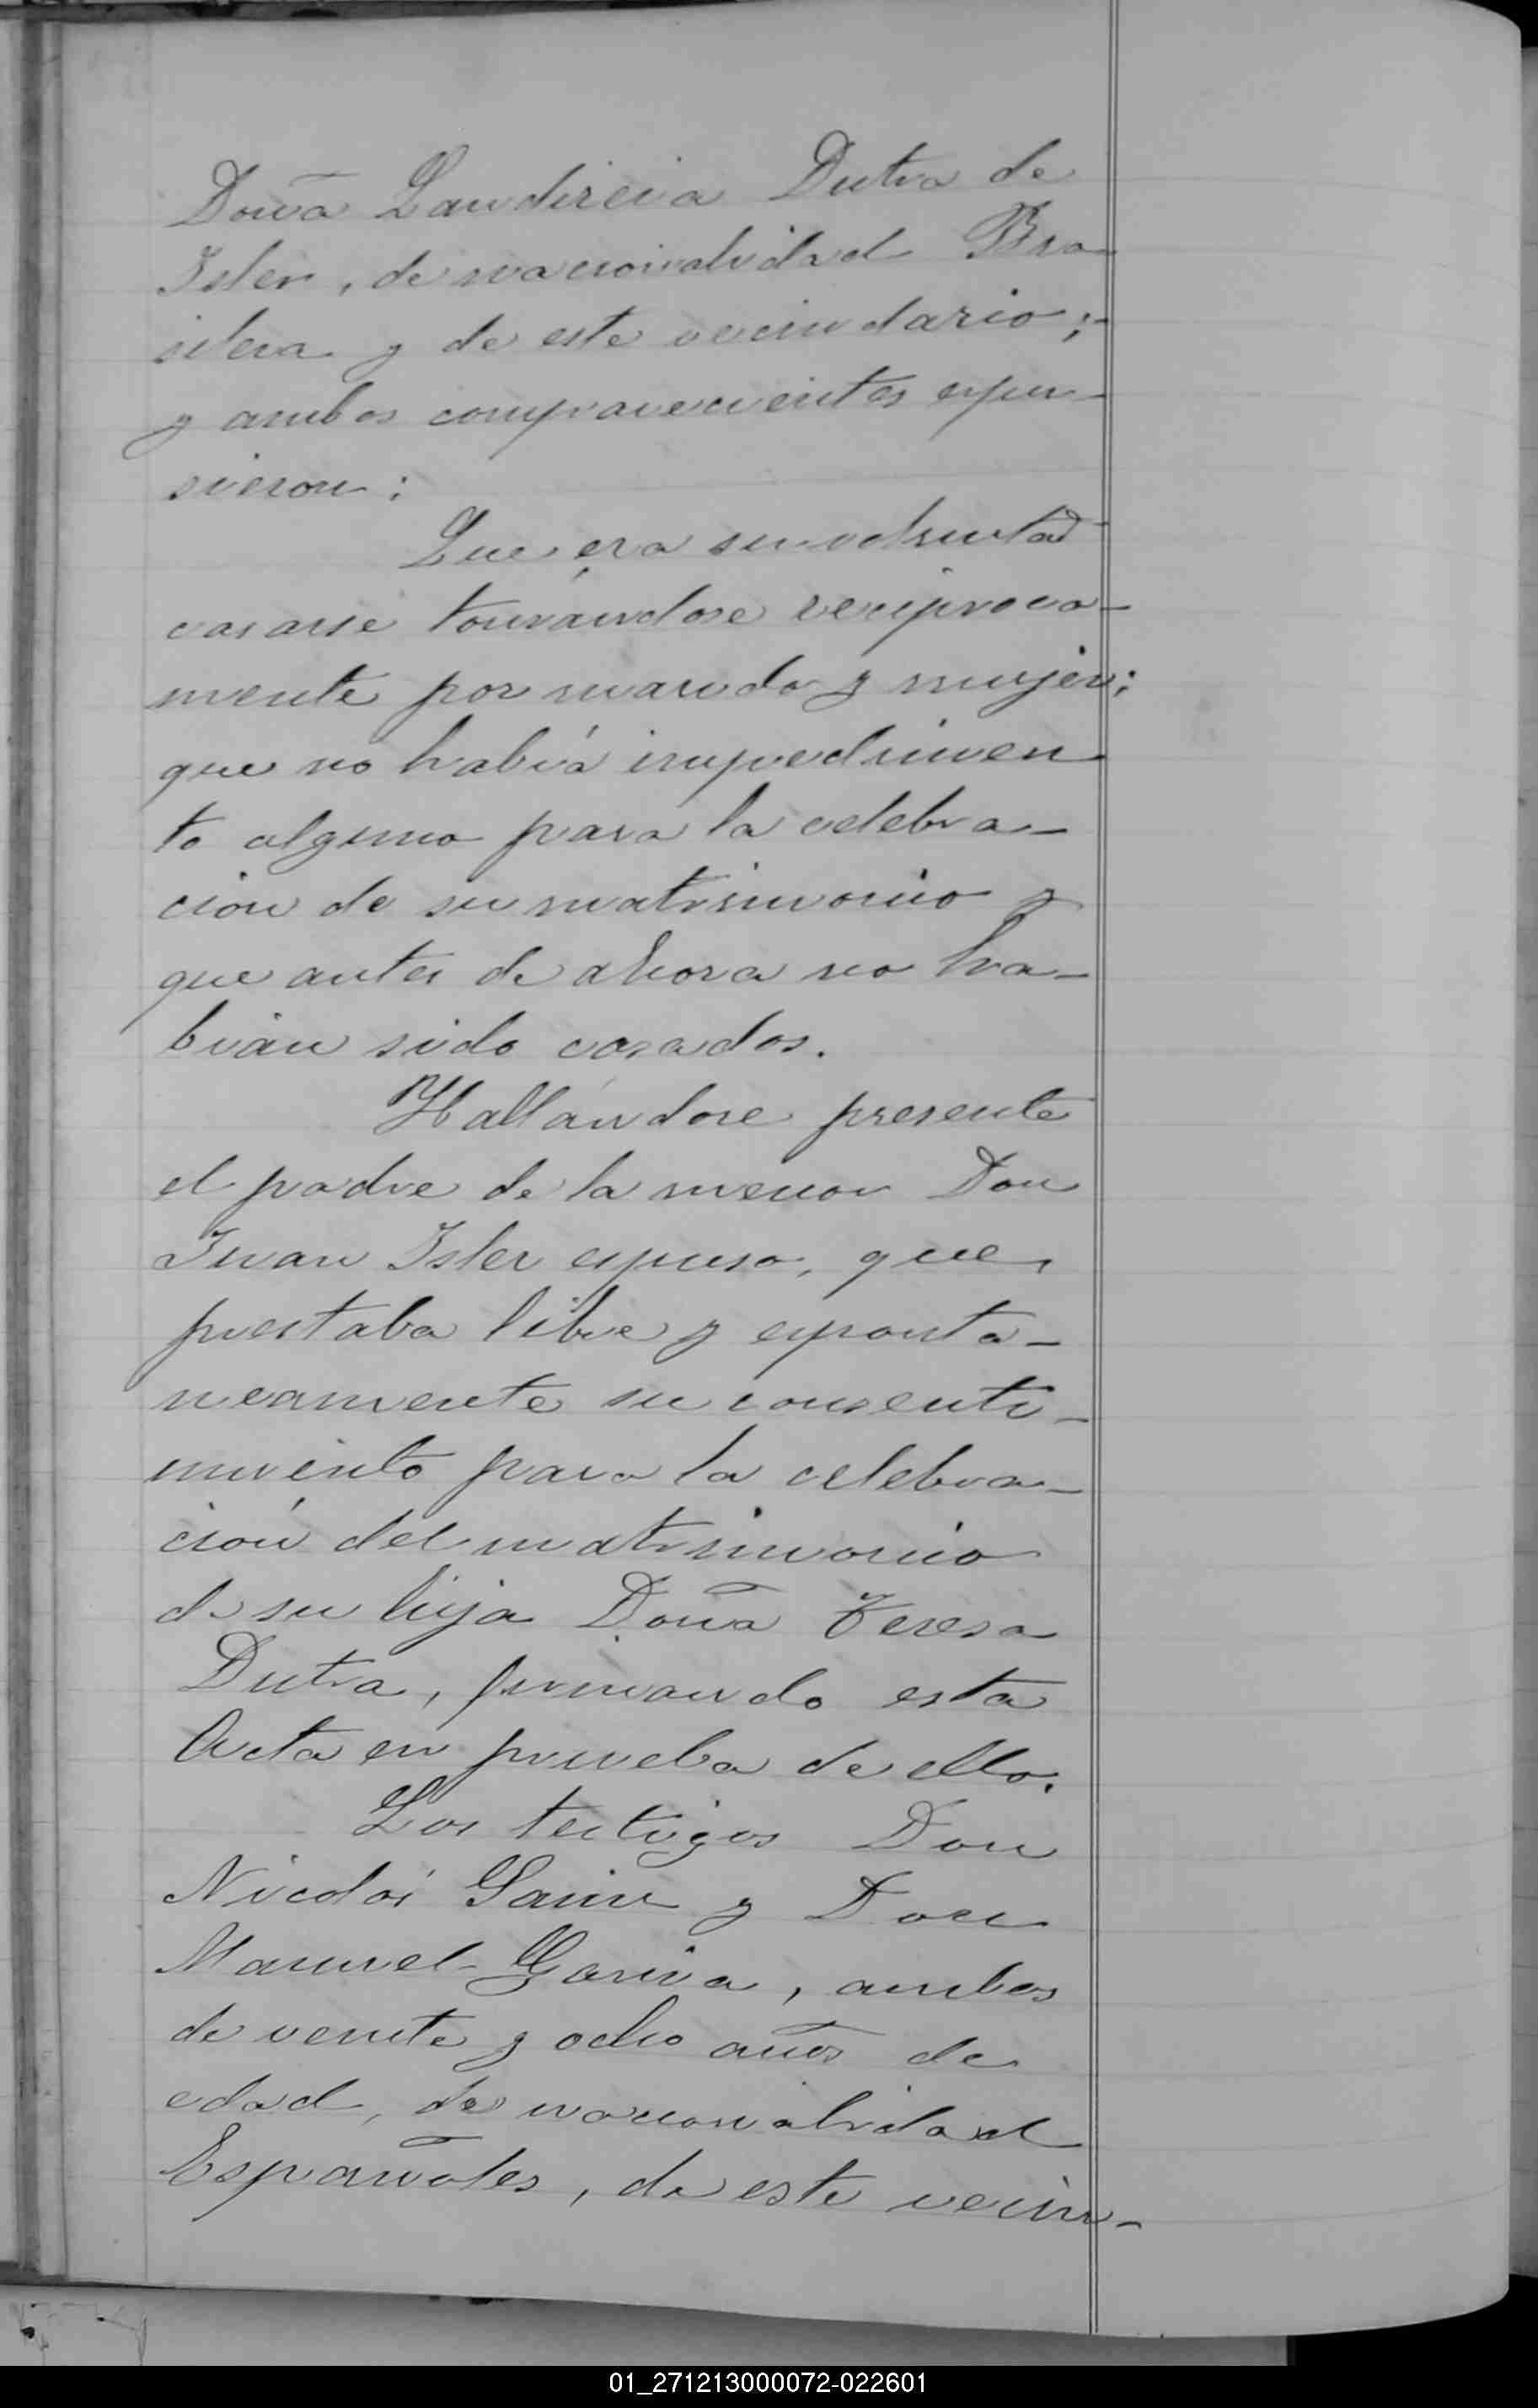 Doña Laudireia Dutra de
Isler, de nacionalidad Bra
silera y de este vecindario;-
y ambos comparecientes espu-
sieron:
Que era su voluntad
casarse tomándose reciproca-
mente por marido y mujer;
que no había impedimen
to alguno para la celebra-
ción de su matrimonio y
que antes de ahora no ha-
bían sido casados.
Hallándose presente
el padre de la menor Don
Juan Isler espuso, que
prestaba libre y esponta-
neamente su consenti-
miento para la celebra-
ción del matrimonio
de su hija Doña Teresa
Dutra, firmando esta
Acta en prueba de ello.
Los testigos Don
Nicolás y Don
Manuel, ambos
de veinte y ocho años de
edad, de nacionalidad
Españoles, de este vecin-
01_271213000072-022601